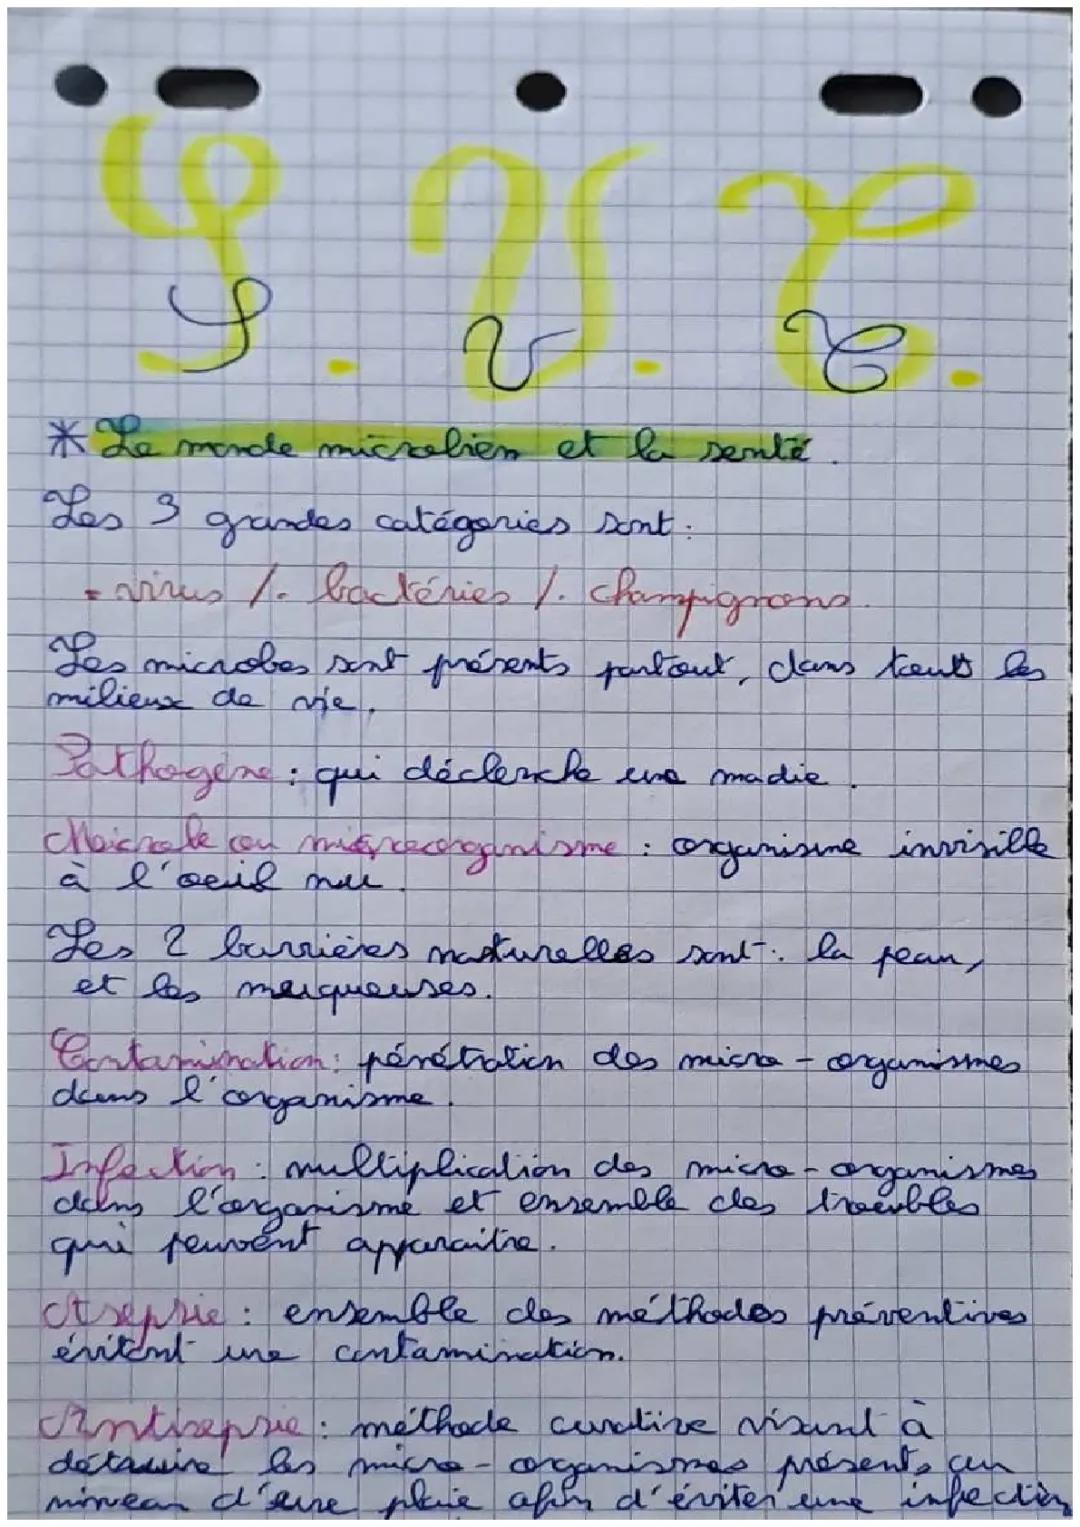 S.V.T.
* Le monde microbien et la santé.
Les 3 grandes catégories sont:
- virus /. bactéries /. champignons.
Les microbes sont présents partout, dans tout les
milieux de vie.
Pathogène: qui déclenche une madie.
Microbe ou microorganisme: organisme invisible
à l'oeil nu.
Les 2 barrières naturelles sont: la peau,
et les muqueuses.
Contamination: pénétration des micro-organismes
dans l'organisme.
Infection: multiplication des micro-organismes
dans l'organisme et ensemble des troubles
qui peuvent apparaitre.
Asepsie: ensemble des méthodes préventives
évitant une contamination.
Antisepsie: méthode curative visant à
détruire les micro-organismes présents au
niveau d'une plaie afin d'éviter une infection